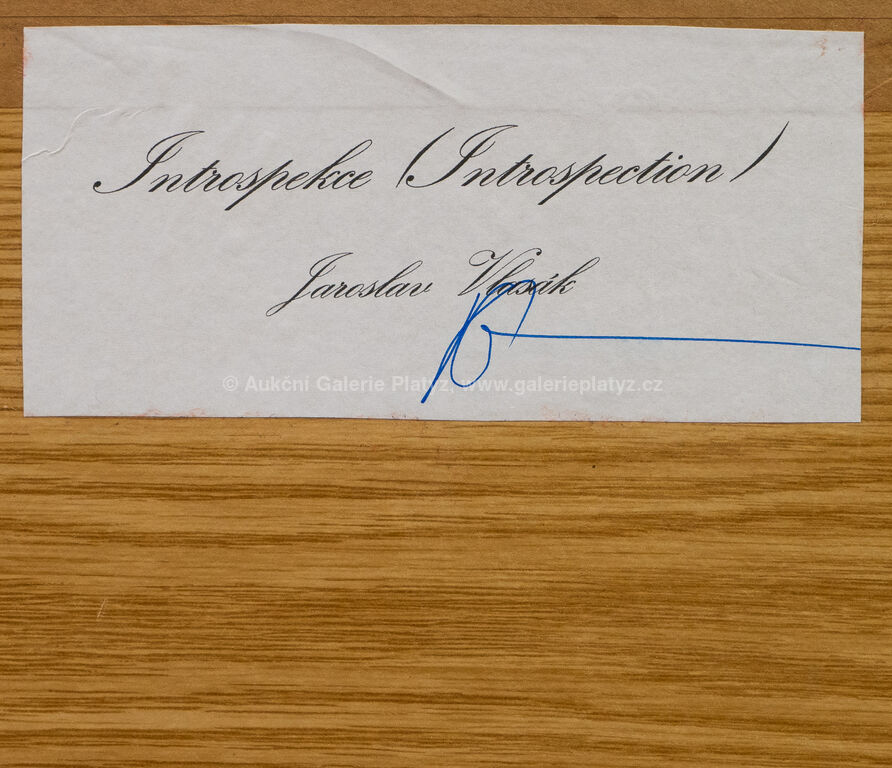 Introspekce (Introspection)
Jaroslav Vlasák
© Aukční Galerie Platýz, www.galerieplatyz.cz